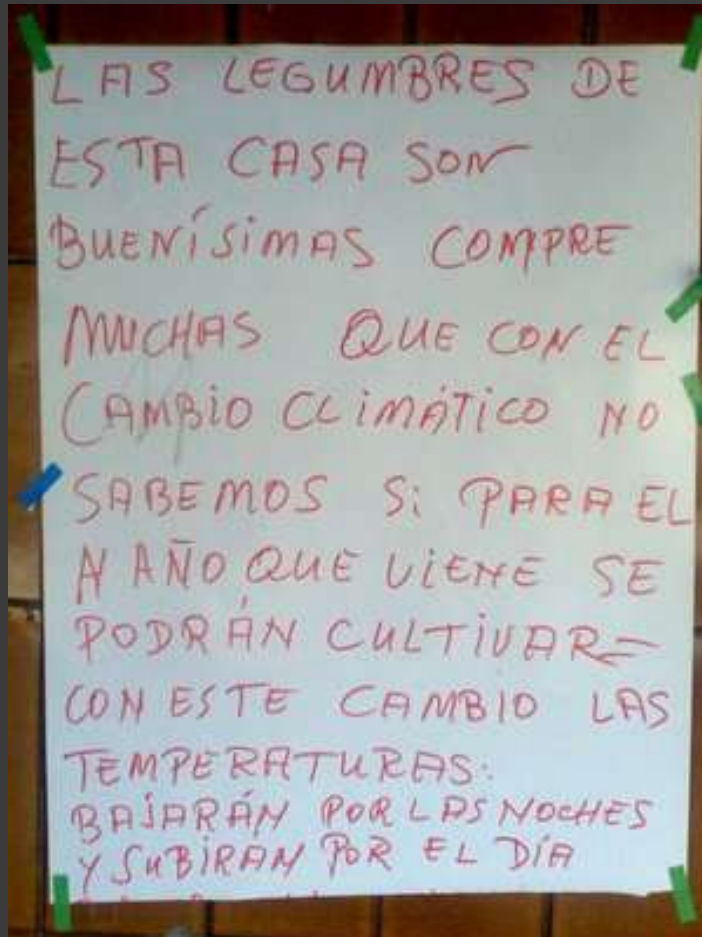 LAS LEGUMBRES DE
ESTA CASA SON
BUENÍSIMAS COMPRE
MUCHAS QUE CON EL
CAMBIO CLIMÁTICO NO
SABEMOS Si PARA EL
AÑO QUE VIENE SE
PODRÁN CULTIVAR=
CON ESTE CAMBIO LAS
TEMPERATURAS:
BAJARÁN POR LAS NOCHES
Y SUBIRAN POR EL DÍA